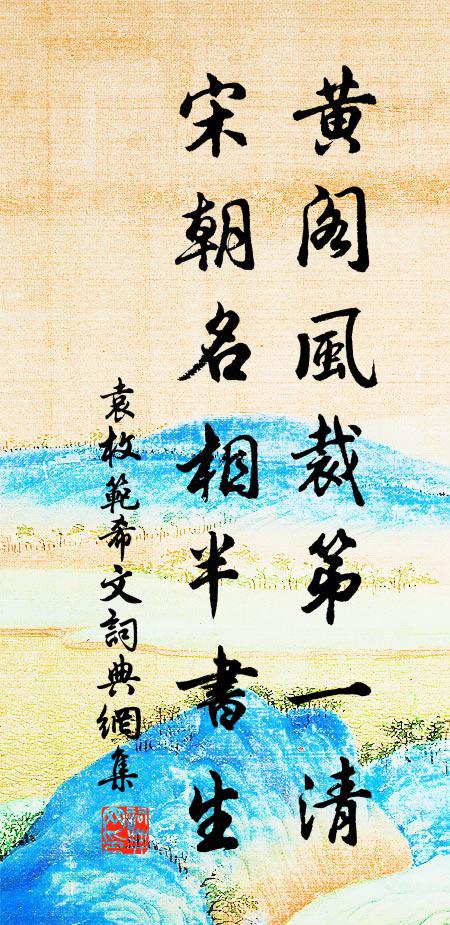 黄阁風裁第一清
宋朝名相半書生
袁枚範希文詞典網集